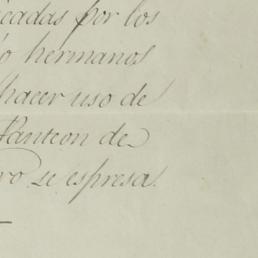 icadas por los
o hermanos
hacer uso de
Panteon de
ro se espresa.